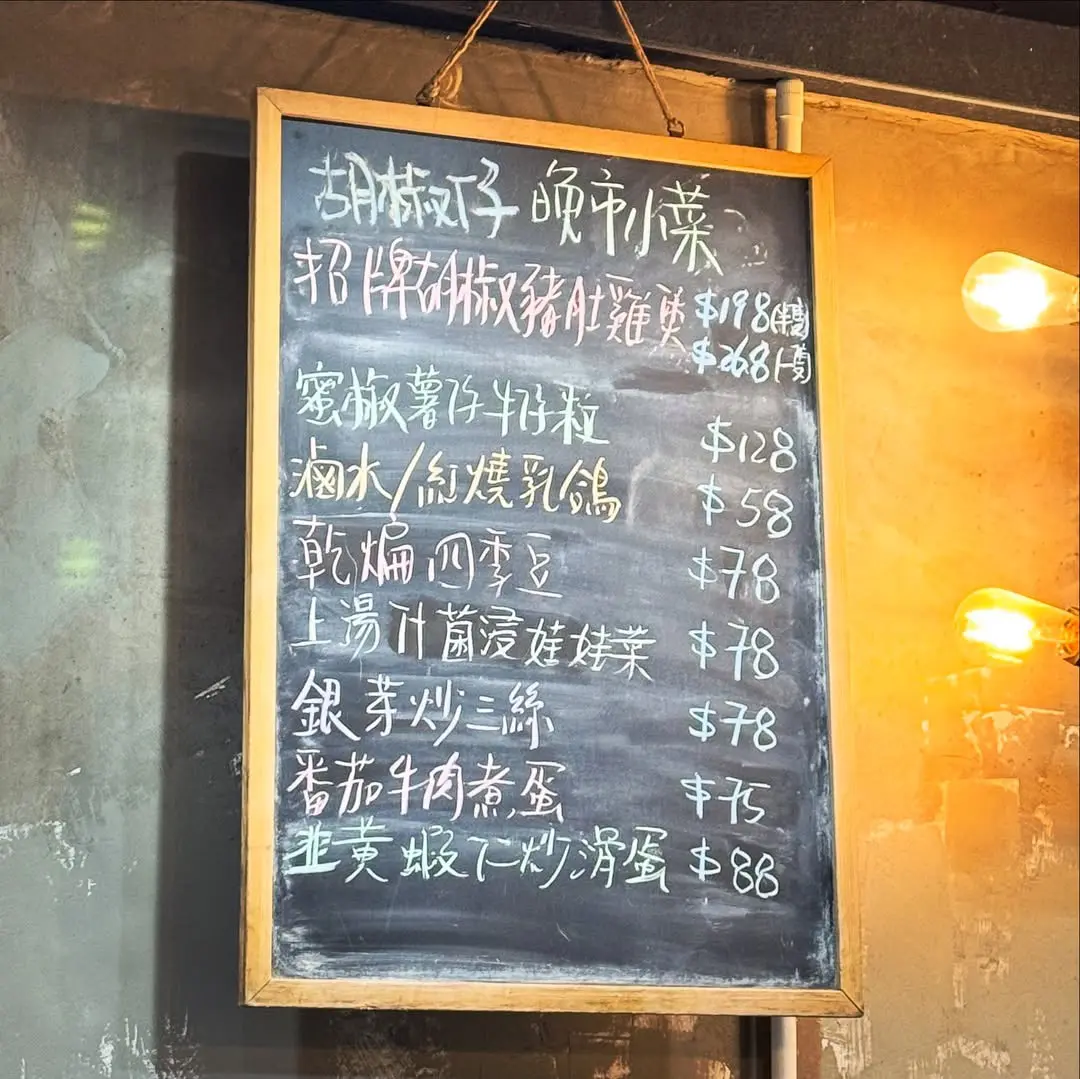 胡椒仔 晚市小菜
招牌胡椒豬肚雞煲 $198(半隻)
$268(一隻)
蜜椒薯仔牛仔粒 $128
滷水/紅燒乳鴿 $58
乾煸四季豆 $78
上湯什菌浸娃娃菜 $78
銀芽炒三絲 $78
番茄牛肉煮蛋 $75
韭黄蝦仁炒滑蛋 $88